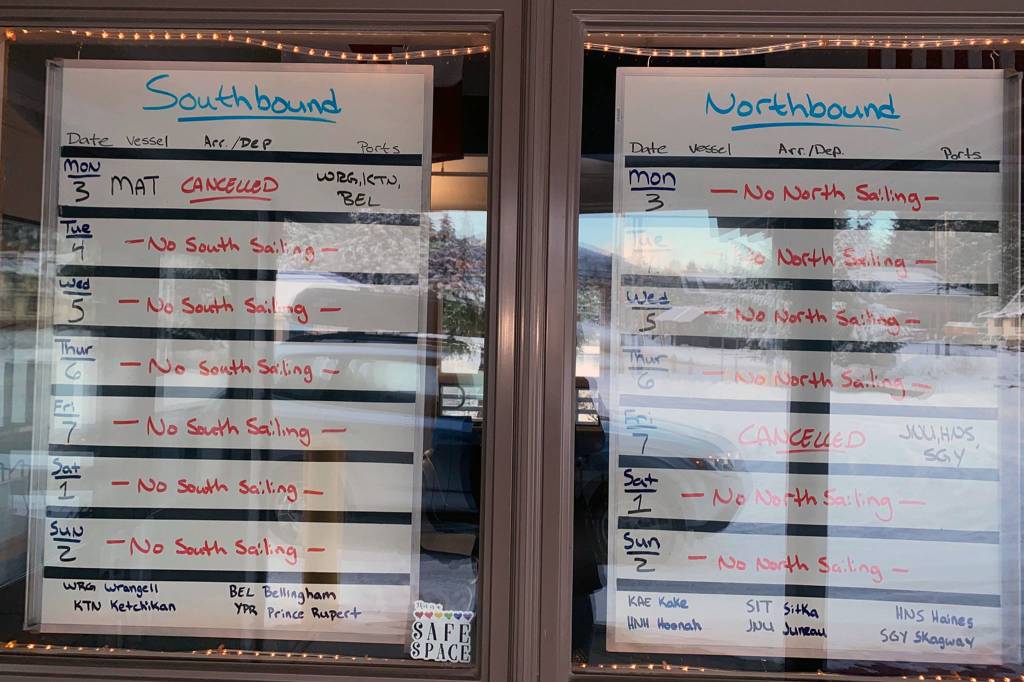 Southbound
Date Vessel Arr./Dep Ports
Mon
3 MAT CANCELLED WRG, KTN,
BEL
Tue
4 - No South Sailing -
Wed
5 - No South Sailing -
Thur
6 - No South Sailing -
Fri
7 - No South Sailing -
Sat
1 - No South Sailing -
Sun
2 - No South Sailing -
WRG Wrangell BEL Bellingham
KTN Ketchikan YPR Prince Rupert
SAFE
SPACE
Northbound
Date Vessel Arr./Dep. Ports
Mon
3 - No North Sailing -
Tue
No North Sailing -
Wed
5 - No North Sailing -
Thur
6 - No North Sailing -
Fri
7 CANCELLED JNU, HNS,
SGY
Sat
1 - No North Sailing -
Sun
2 - No North Sailing -
KAE Kake SIT Sitka HNS Haines
HNH Hoonah JNU Juneau SGY Skagway